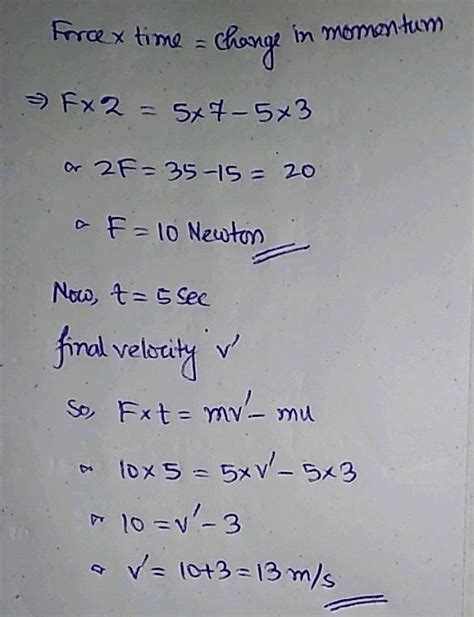 Force × time = change in momentum
⇒ F×2 = 5×7 – 5×3
or 2F = 35 – 15 = 20
or F = 10 Newton
Now, t = 5 sec
final velocity v'
So, F×t = mv' – mu
or 10×5 = 5×v' – 5×3
or 10 = v' – 3
or v' = 10+3 = 13 m/s